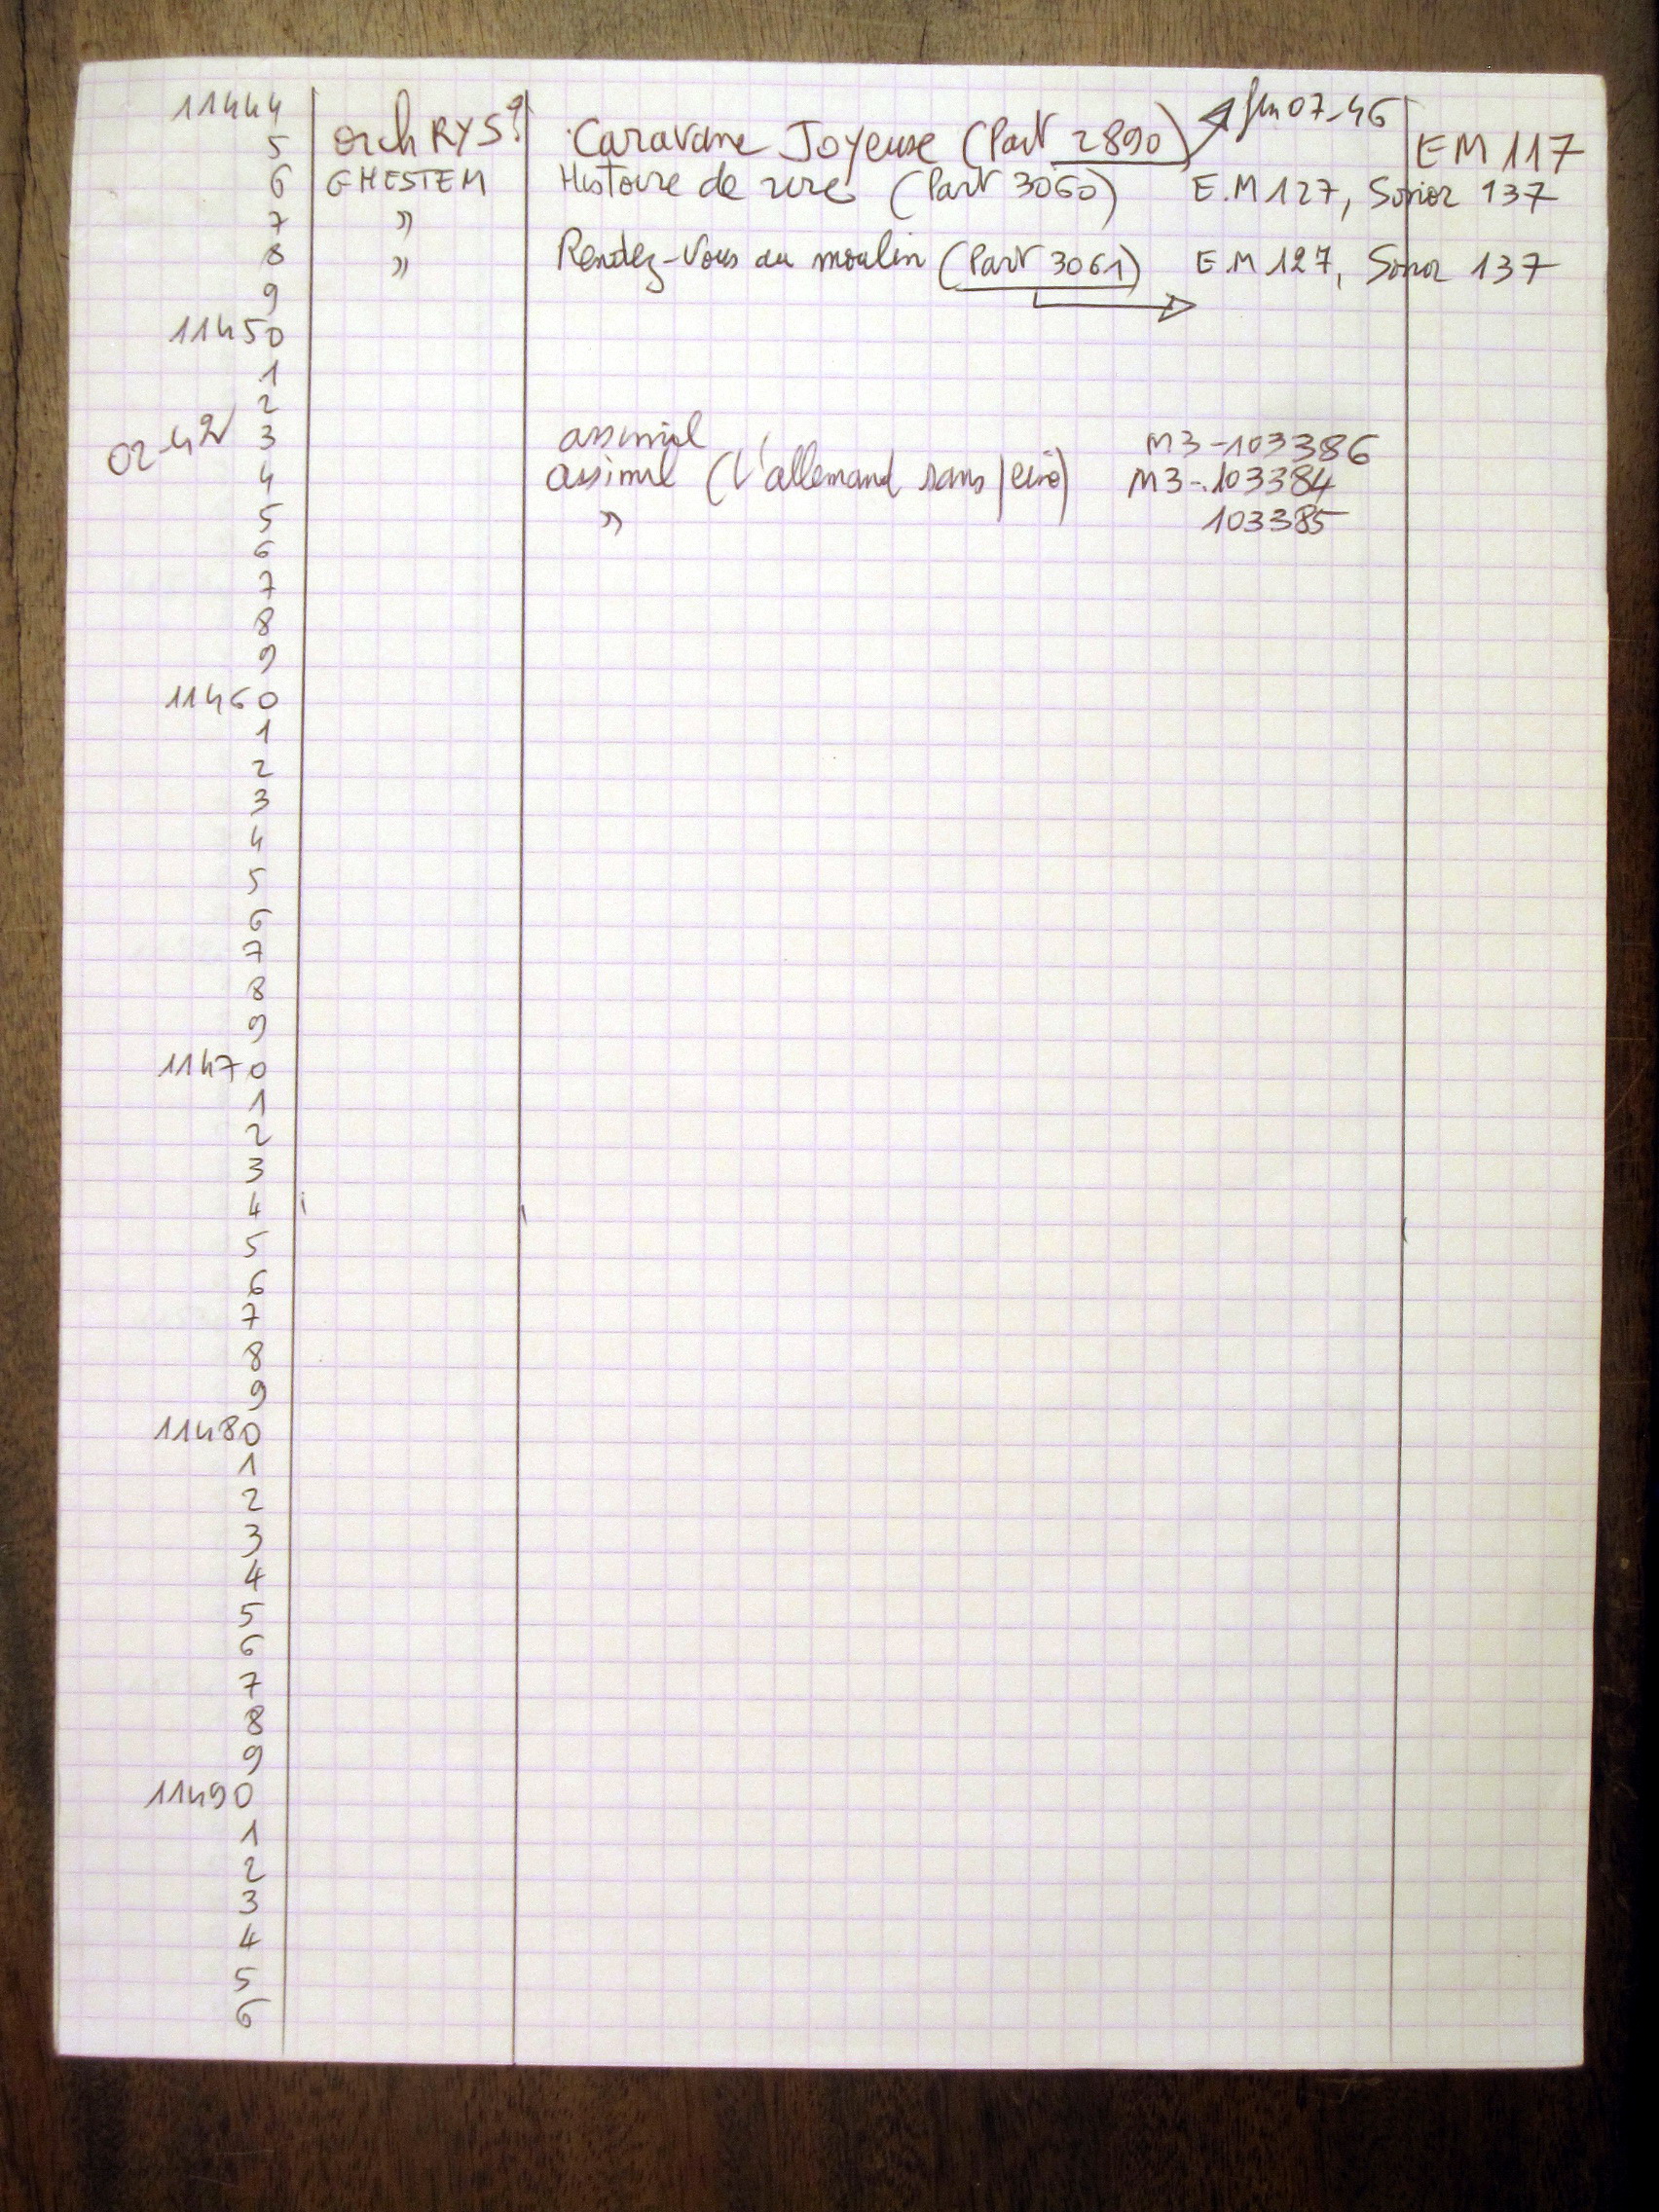 11444
5 orch RYS? Caravane Joyeuse (Part 2890) fin 07-46 EM 117
6 GHESTEM Histoire de rire (Part 3060) E.M 127, Sonor 137
7 "
8 " Rendez-Vous au moulin (Part 3061) E M 127, Sonor 137
9
11450
1
2
02-42 3 assimil M3-103386
4 assimil (L'allemand sans peine) M3-103384
5 " 103385
6
7
8
9
11460
1
2
3
4
5
6
7
8
9
11470
1
2
3
4
5
6
7
8
9
11480
1
2
3
4
5
6
7
8
9
11490
1
2
3
4
5
6